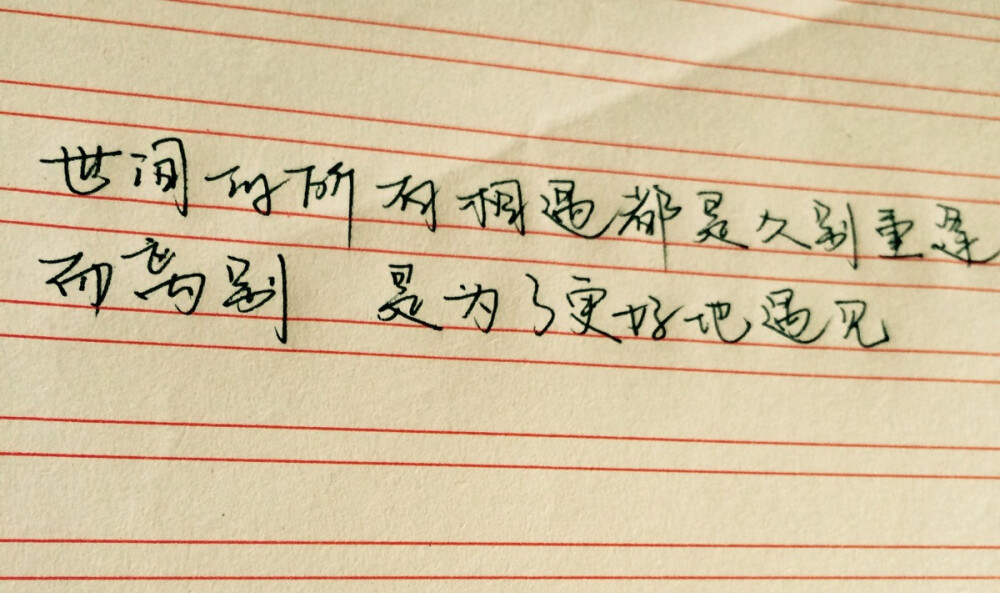 世间的所有相遇都是久别重逢
而离别 是为了更好地遇见